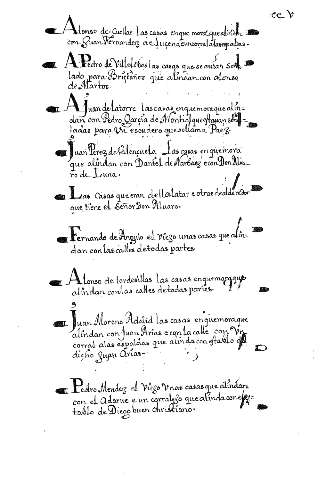 cc V
Alonso de Cuellar las casas en que mora que alindan
con Juan Fernandez de lucena
A Pedro de Villalobos las casas que se avian
lado para Briseñes que alindan con alonso
de Martos.
A Juan de latorre las casas en que mora que alin-
dan con Pedro Garcia de Montis
para Un escudero que sellama Paez
Juan Perez de Valençuela. Las casas en que mora
que alindan con Daniel de Narbaez e con Don Alva-
ro de Luna.
Las Casas que eran de
que tiene el Señor Don Alvaro.
Fernando de Angulo el Viejo unas casas que alin-
dan con las calles de todas partes
Alonso de tordesillas las casas en que mora que
alindan con las calles de todas partes
Juan Moreno Adalid las casas en que mora que
alindan con Juan Arias e con la calle con Un
corral a las espaldas que alinda con establo de
dicho Juan Arias-
Pedro Mendez el Viejo Unas casas que alindan
con el Adarve e un corralejo que alinda con es-
tablo de Diego buen christiano.